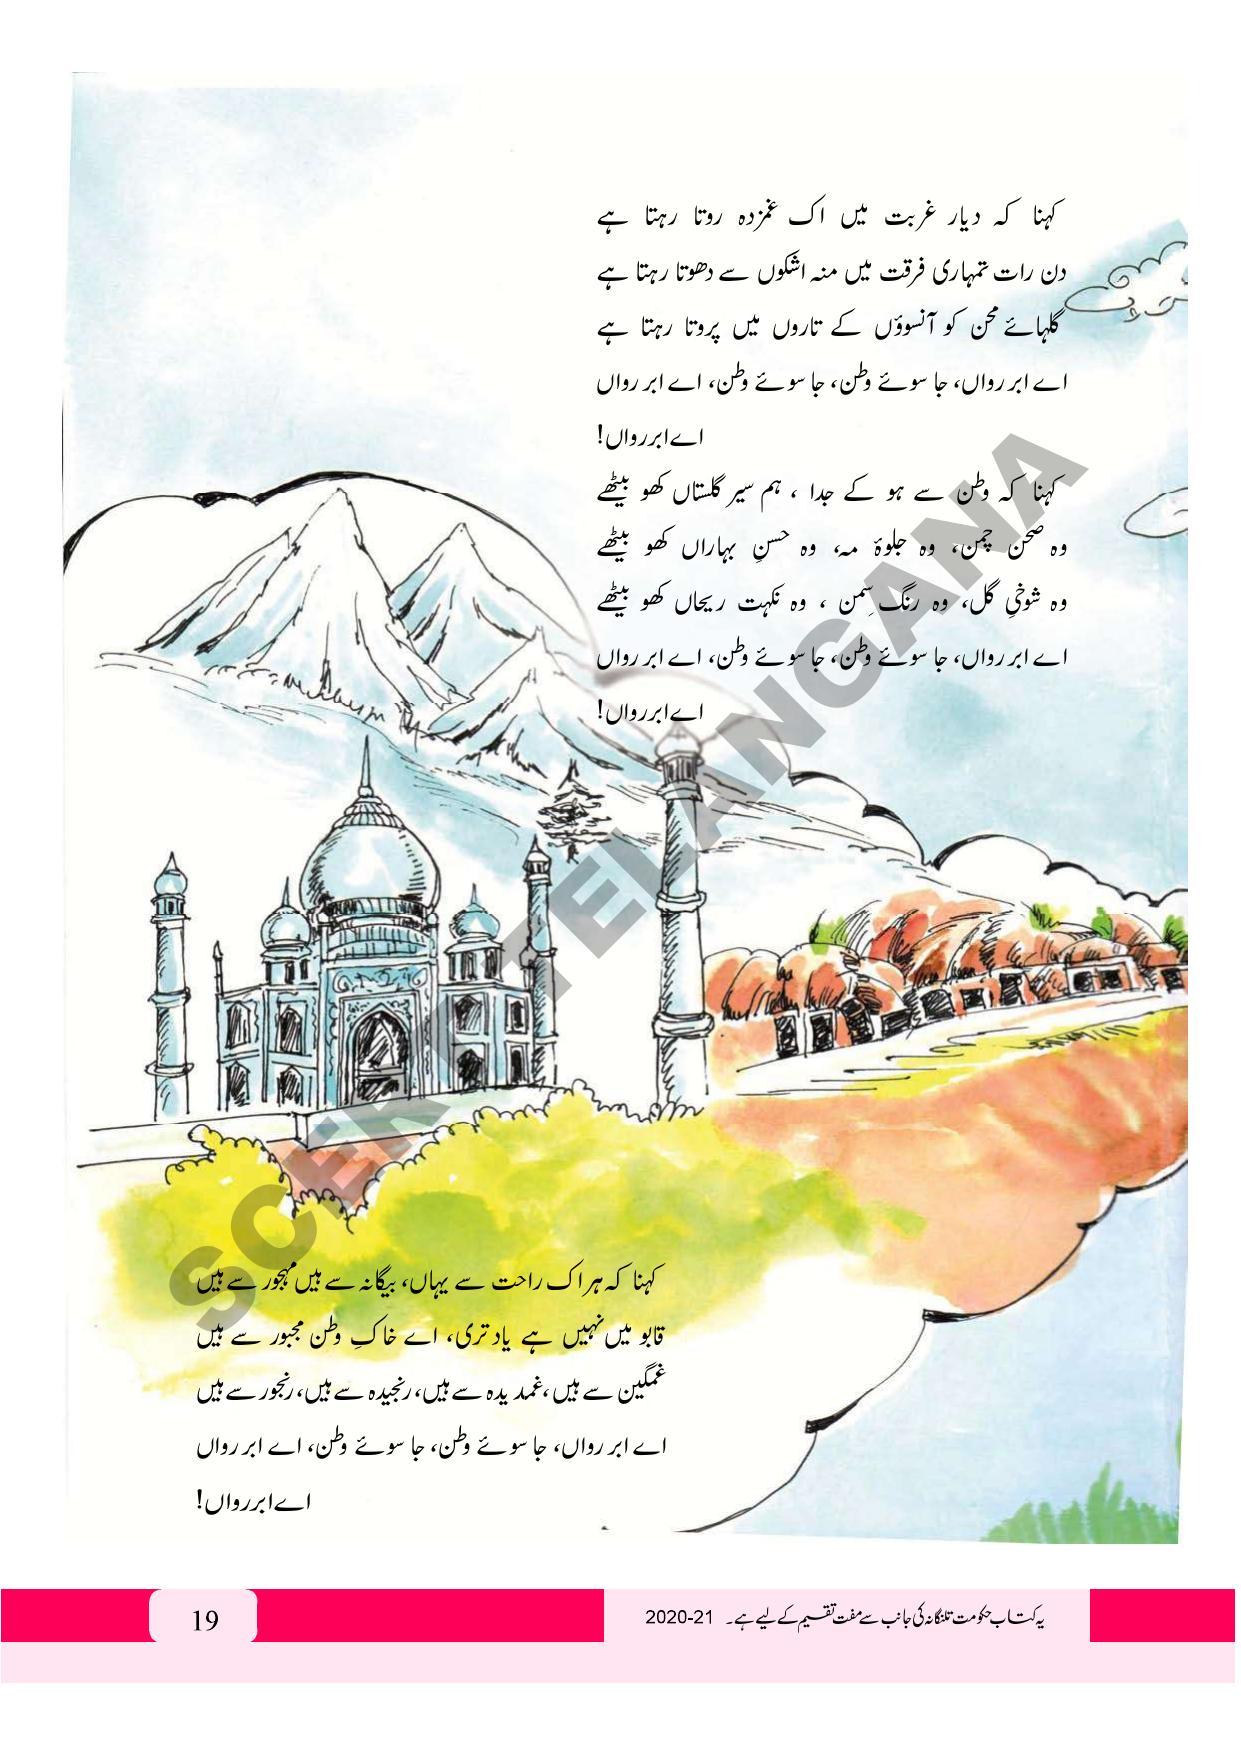 کہنا کہ دیار غربت میں اک غمزدہ روتا رہتا ہے
دن رات تمہاری فرقت میں منہ اشکوں سے دھوتا رہتا ہے
گلہائے محن کو آنسوؤں کے تاروں میں پروتا رہتا ہے
اے ابر رواں، جا سوئے وطن، جا سوئے وطن، اے ابر رواں
اے ابر رواں!
کہنا کہ وطن سے ہو کے جدا ، ہم سیر گلستاں کھو بیٹھے
وہ صحن چمن، وہ جلوۂ مہ، وہ حسنِ بہاراں کھو بیٹھے
وہ شوخیِ گل، وہ رنگ سِمن ، وہ نکہت ریحاں کھو بیٹھے
اے ابر رواں، جا سوئے وطن، جا سوئے وطن، اے ابر رواں
اے ابر رواں!
کہنا کہ ہر اک راحت سے یہاں، بیگانہ سے ہیں مہجور سے ہیں
قابو میں نہیں ہے یاد تری، اے خاکِ وطن مجبور سے ہیں
غمگین سے ہیں ،غمدیدہ سے ہیں، رنجیدہ سے ہیں، رنجور سے ہیں
اے ابر رواں، جا سوئے وطن، جا سوئے وطن، اے ابر رواں
اے ابر رواں!
SCERT TELANGANA
یہ کتاب حکومت تلنگانہ کی جانب سے مفت تقسیم کے لیے ہے۔ 2020-21
19